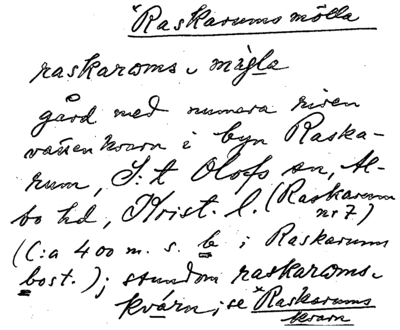 *Raskarums mölla
raskaroms, mi̯gla
gård med numera riven
vattenkvarn i byn Raska-
rum, S:t Olofs sn, Al-
bo hd, Krist. l. (Raskarum
nr 7)
(C:a 400 m. s. b i Raskarum
bost.); stundom raskaroms,
kvárn; se *Raskarums
kvarn